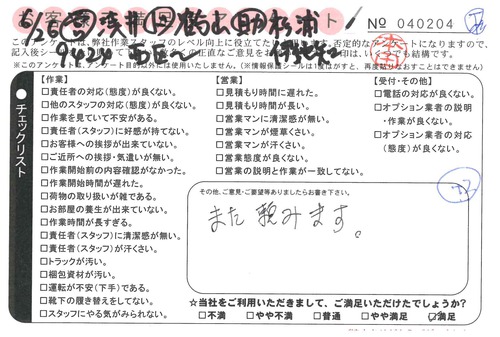 № 040204
このアンケートは、弊社作業スタッフのレベル向上に役立てたり
否定的なアンケートになりますので、
チェックリスト
【作業】
□責任者の対応(態度)が良くない。
□他のスタッフの対応(態度)が良くない。
□作業を見ていて不安がある。
□責任者(スタッフ)に好感が持てない。
□お客様への挨拶が出来ていない。
□ご近所への挨拶・気遣いが無い。
□作業開始前の内容確認がなかった。
□作業開始時間が遅れた。
□荷物の取り扱いが雑である。
□お部屋の養生が出来ていない。
□作業時間が長すぎる。
□責任者(スタッフ)に清潔感が無い。
□責任者(スタッフ)が汗くさい。
□トラックが汚い。
□梱包資材が汚い。
□運転が不安(下手)である。
□靴下の履き替えをしてない。
□スタッフにやる気がみられない。
【営業】
□見積もり時間に遅れた。
□見積もり時間が長い。
□営業マンに清潔感が無い。
□営業マンが煙草くさい。
□営業マンが汗くさい。
□営業態度が良くない。
□営業の説明と作業が一致してない。
【受付・その他】
□電話の対応が良くない。
□オプション業者の説明
・作業が良くない。
□オプション業者の対応
(態度)が良くない。
その他、ご意見・ご要望等ありましたらお書き下さい。
また頼みます。
☆当社をご利用いただきまして、ご満足いただけたでしょうか?
□不満 □やや不満 □普通 □やや満足 ☑満足